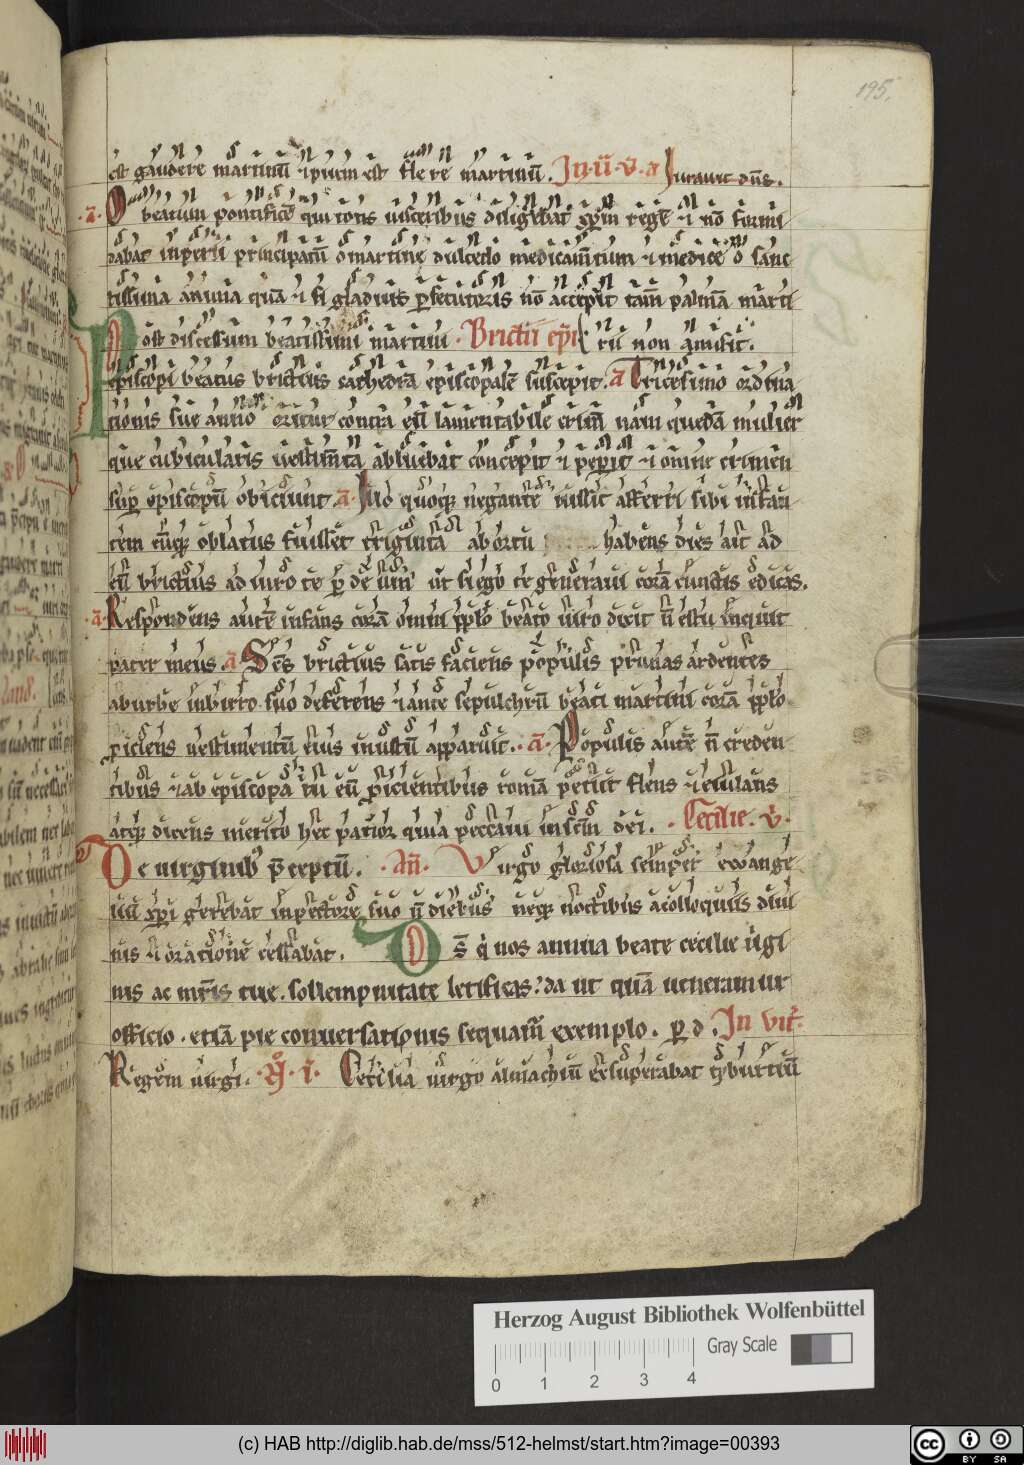 195.
est gaudere martinū ⁊ pium est flere martinū. In ii. v. a Iurauit dn̄s.
.a. O beatum pontificē qui totis uisceribus diligebat xp̄m regē ⁊ nō formi
dabat inperii principatū o martine dulcedo medicamtum ⁊ medice o sanc
tissima anima quā ⁊ si gladius ꝑsecutoris nō accepit tam̄ palmā marti
Post discessum beatissimi martini. Brictii ep̄i rii non amisit.
episcopi beatus brictius cathedrā episcopalē suscepit. a Tricesimo ordina
tionis sue anno oritur contra eū lamentabile crim̄ nam quedā mulier
que cubicularis uestim̄ta abluebat concepit ⁊ peperit ⁊ omne crimen
sup̄ episcopū obiciunt. a Illo quoqꝫ negante iussit afferri sibi infan
tem cūqꝫ oblatus fuisset triginta ab ortu habens dies ait ad
eū brictius adiuro te ꝑ dei um̄ ut si ego te generaui corā cunctis edicas.
.a. Respondens autē infans corā omni pplo beato uiro dixit n̄ es tu inquit
pater meus. a Scs̄ brictius satis faciens populis prunas ardentes
ab urbe in birro suo deferens ⁊ ante sepulchrū beati martini corā pplo
ꝓiciens uestimentū eius inustū apparuit. .a. Populis autē n̄ creden
tibus ⁊ ab episcopatu eū ꝓicientibus romā petiit flens ⁊ eiulans
atqꝫ dicens merito hec patior quia peccaui in scm̄ dei. Cecilie. v.
De uirginibꝫ p̄ceptū. .An̄. Virgo gloriosa semper ewange
lium xp̄i gerebat in pectore suo n̄ diebus neqꝫ noctibus a colloquiis diui
nis ⁊ oratione cessabat. Ds̄ q̇ nos annua beate cecilie uͥgi
nis ac mr̄is tue. sollempnitate letificas: da ut quā ueneramur
officio. etiā pie conuersationis sequam̄ exemplo. ꝑ d. In vit.
Regem uirgi. .R. i. Cecilia uirgo almachiū exsuperabat tyburtiū
Herzog August Bibliothek Wolfenbüttel
Gray Scale
0 1 2 3 4
(c) HAB http://diglib.hab.de/mss/512-helmst/start.htm?image=00393
cc BY SA